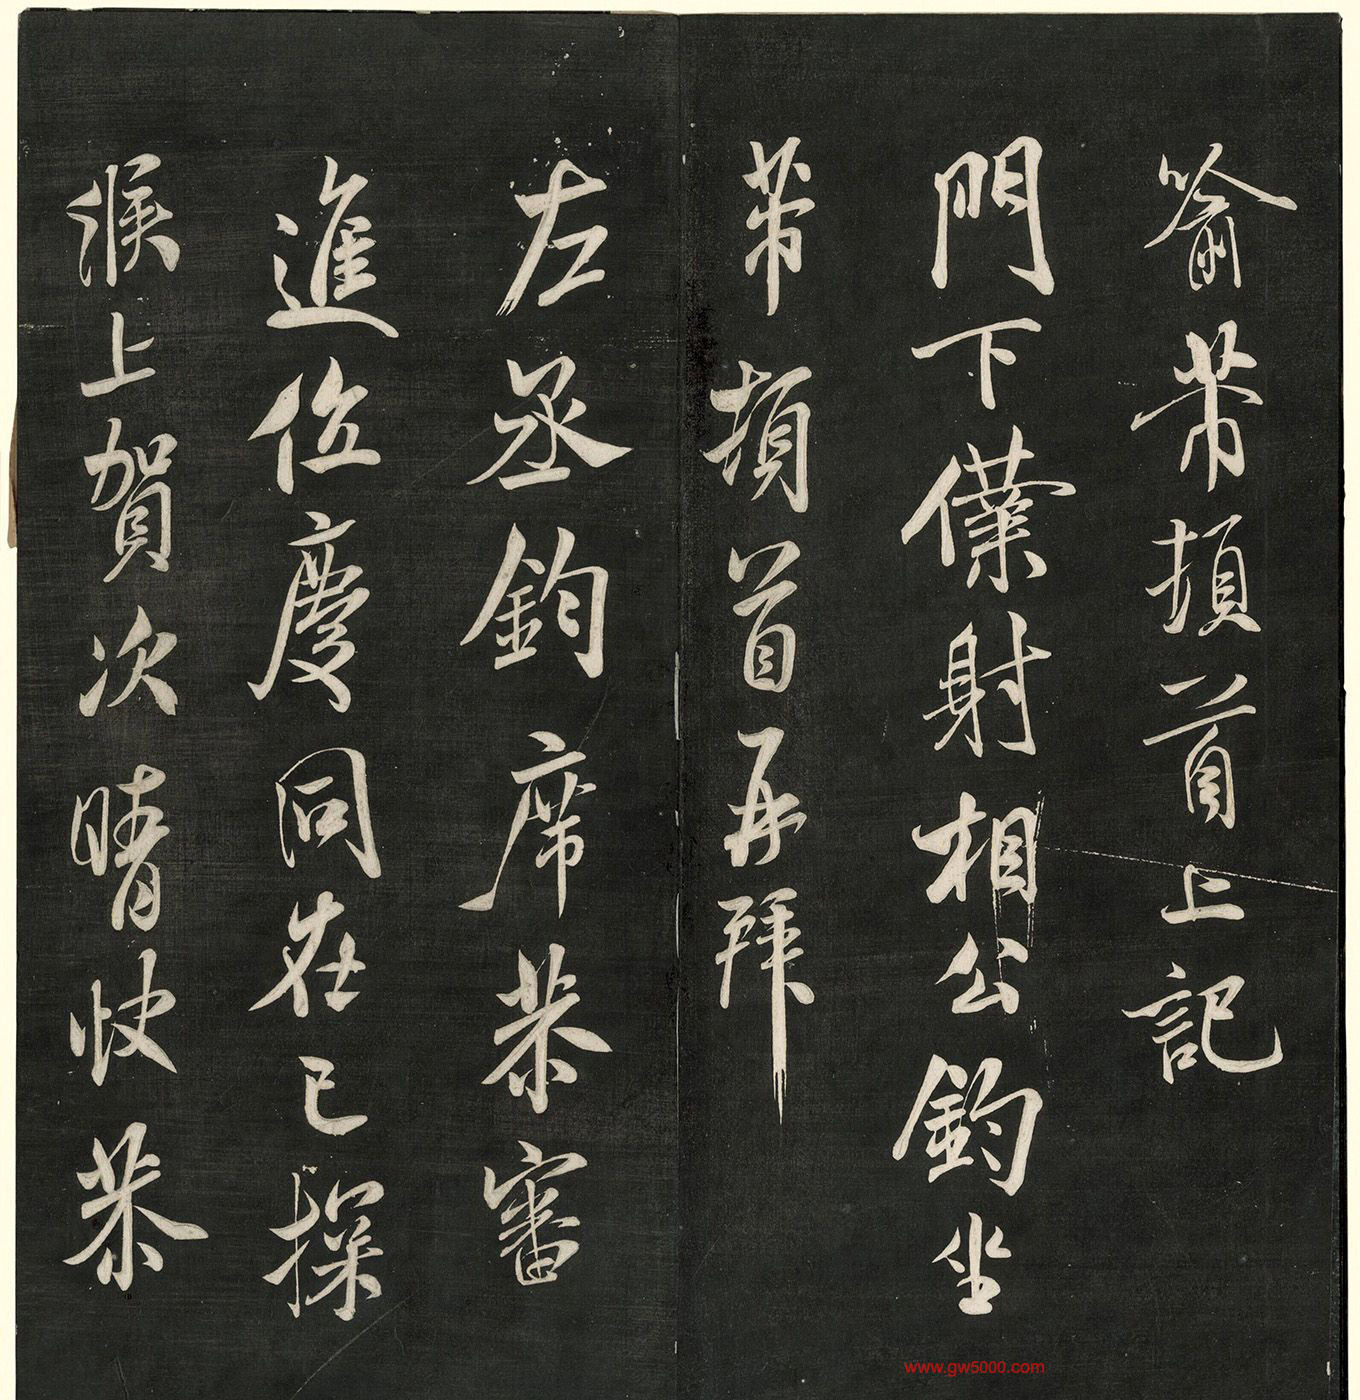 喻芾頓首上記
門下僕射相公鈞坐
芾頓首再拜
左丞鈞席恭審
進位慶同在已探
候上賀次晴快恭
www.gw5000.com